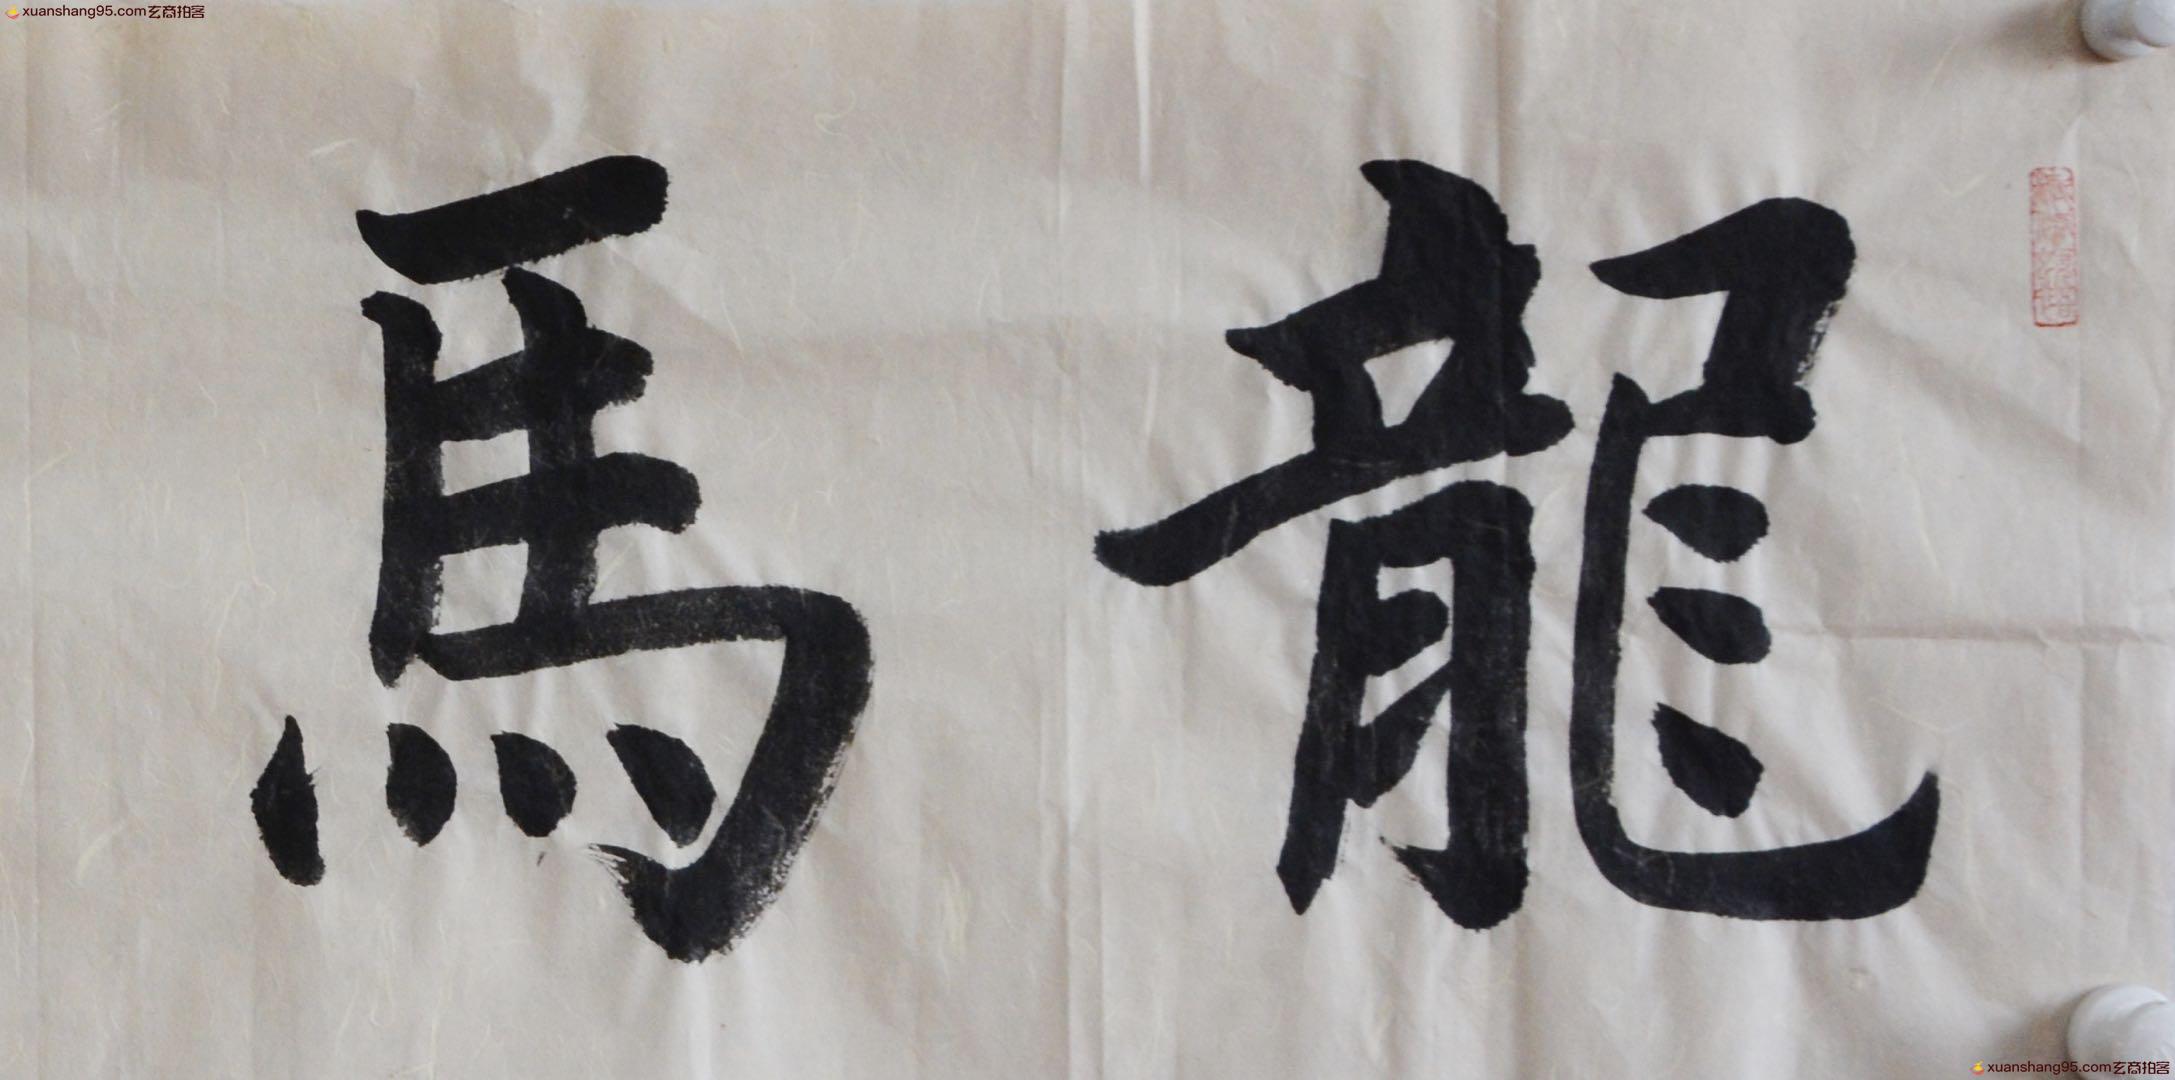 xuanshang95.com玄商拍客
龍馬
xuanshang95.com玄商拍客